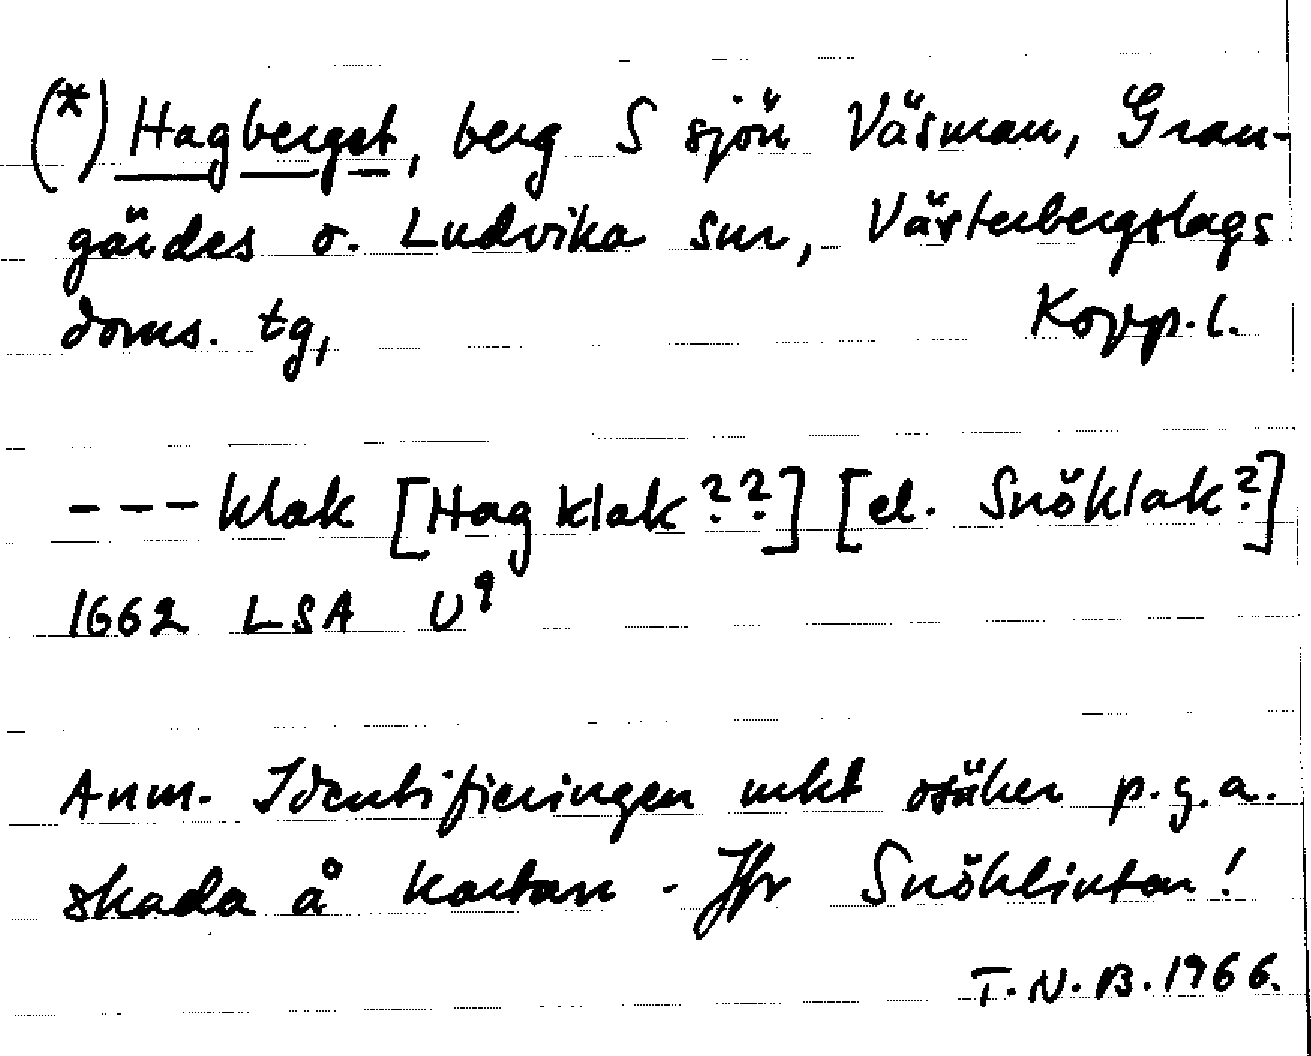 (*) Hagberget, berg S sjön Väsman, Gran-
gärdes o. Ludvika snr, Västerbergslags
doms. tg, Kopp. l.
--- klak [Hagklak??] [el. Snöklak?]
1662 LSA U9
Anm. Identifieringen mkt osäker p.g.a.
skada å kartan. Jfr Snöklinten!
T.N.B. 1966.